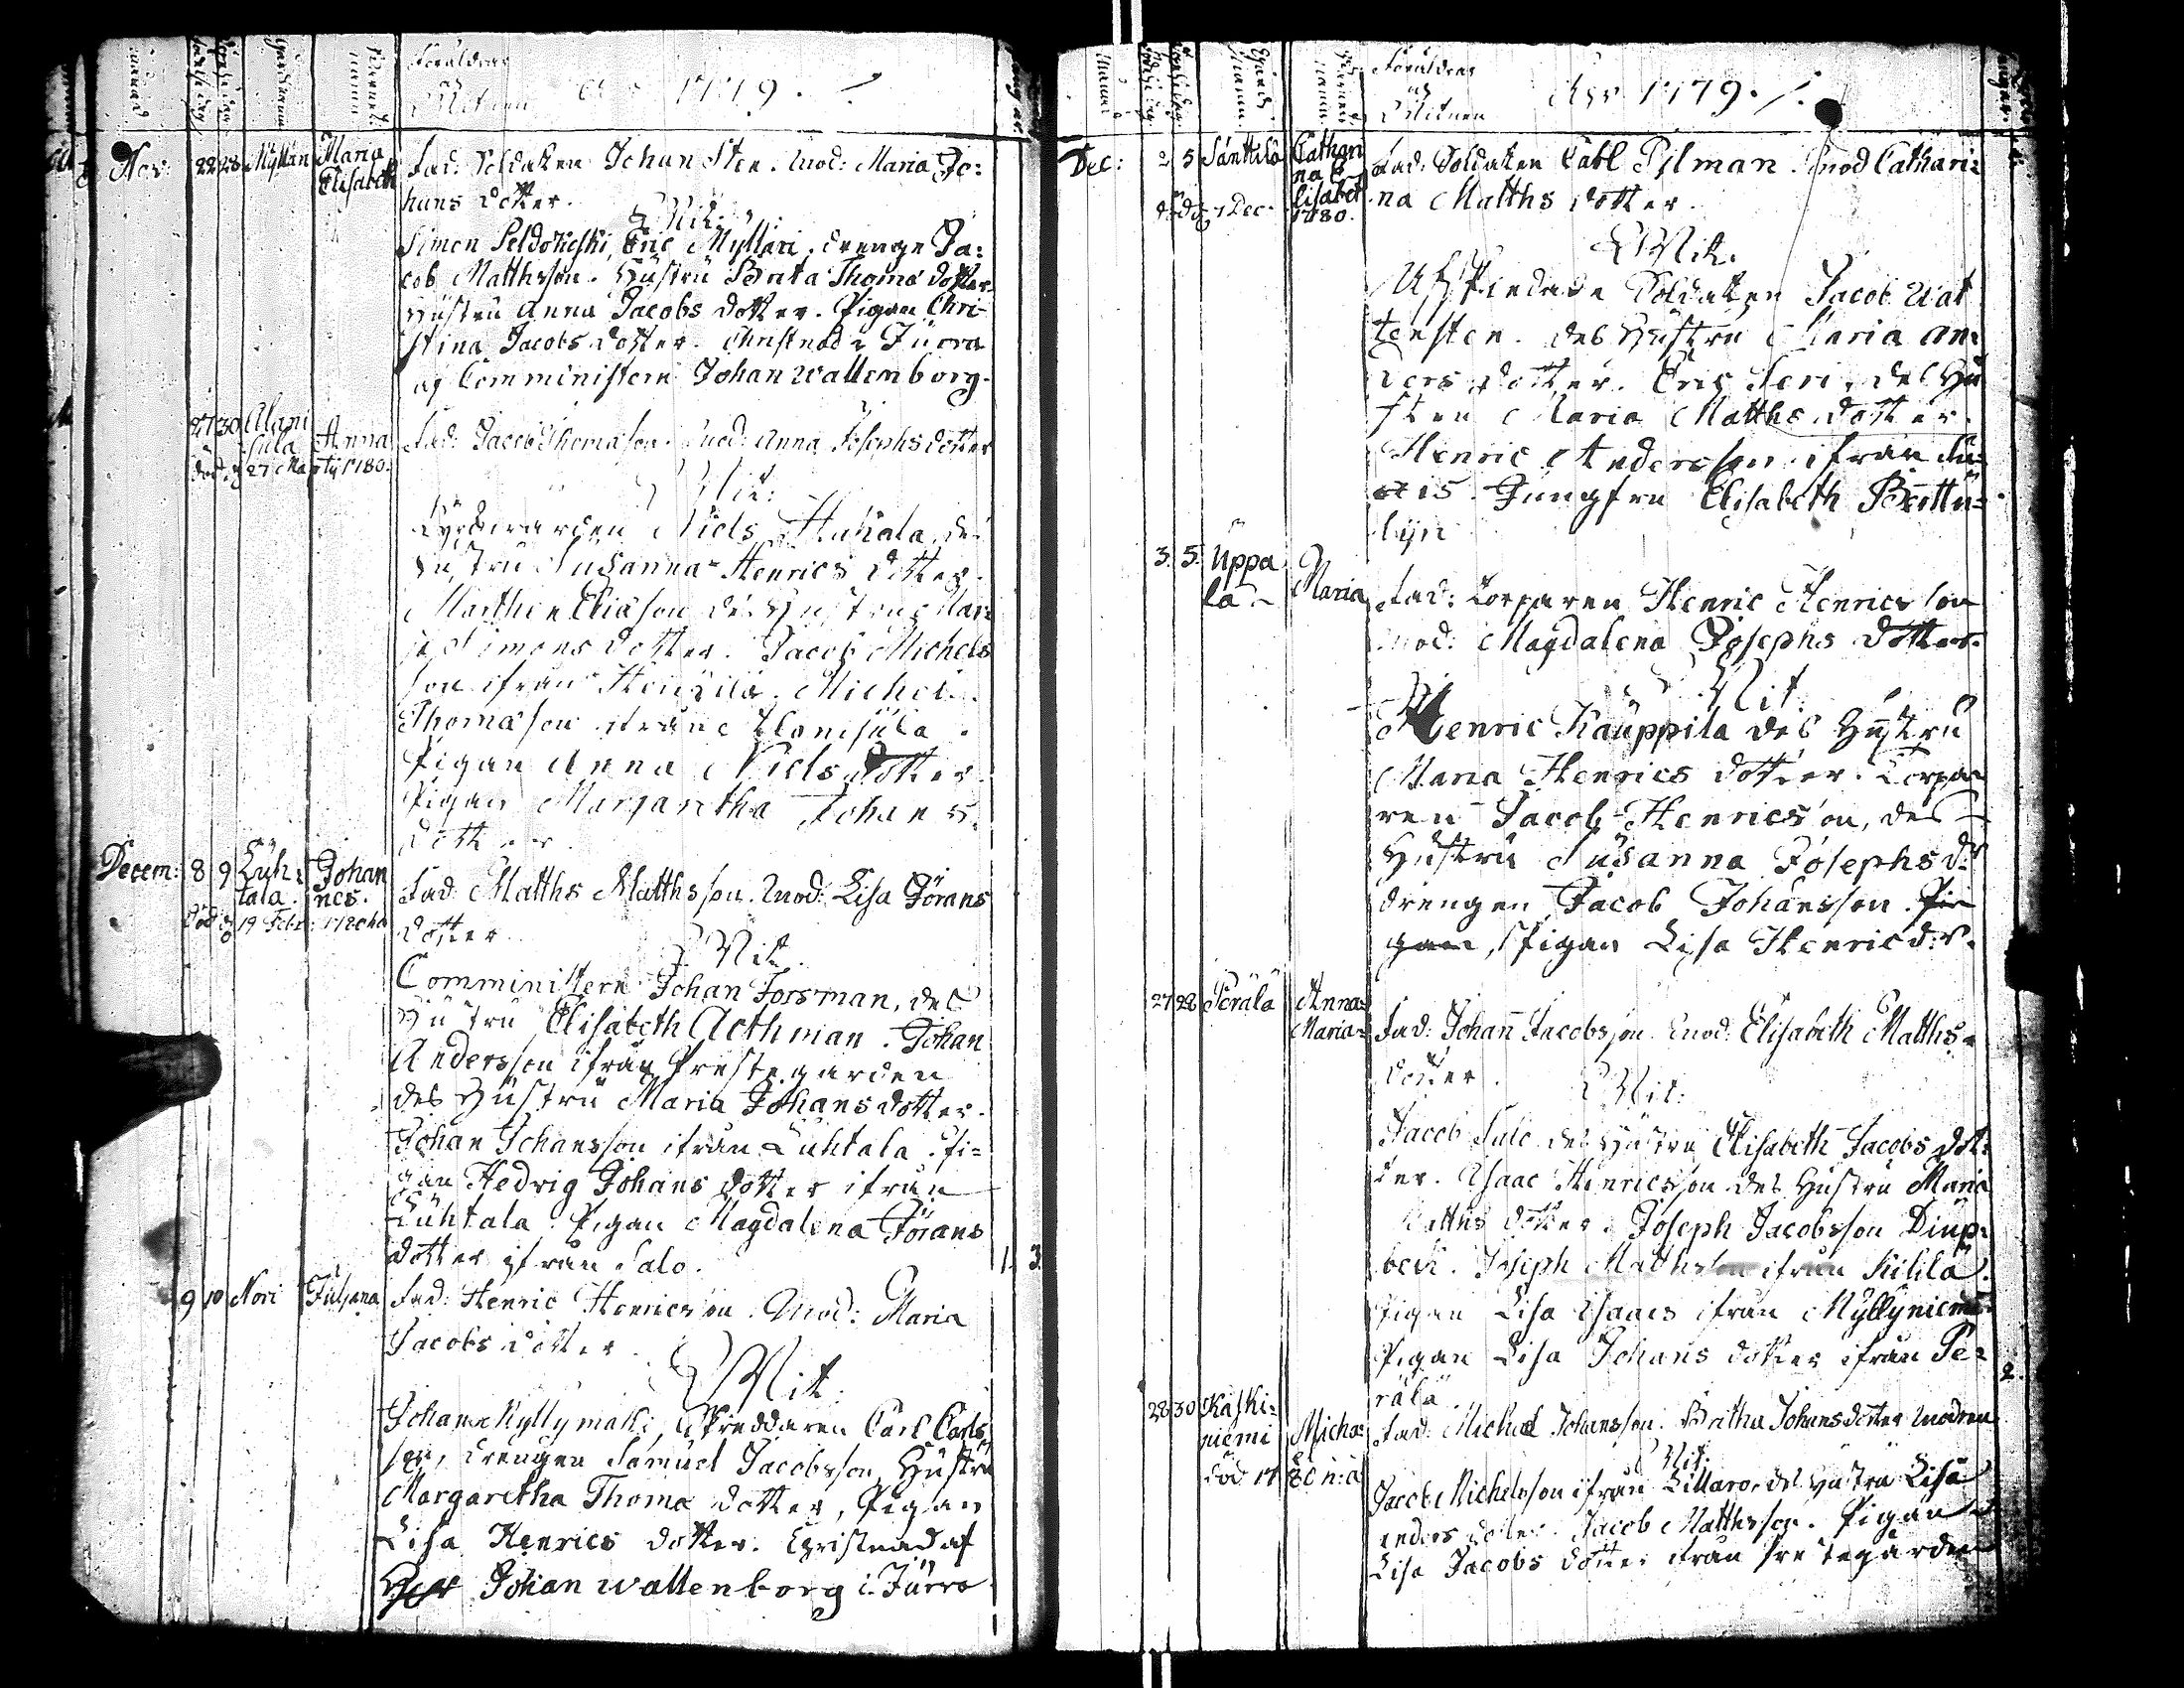 Föräldrar
och
Witnen
1779.
Nov: 22 28 Myllari Maria Elisabeth
Fad: Soldaten Johan Sten. Mod: Maria Jo=
hans dotter.
Wit:
Simon Peldokoski, Eric Myllari, drengen Ja=
cob Matthsson. Hustru Brita Thomæ dotter
Hustru Anna Jacobs dotter. Pigan Chri-
stina Jacobs dotter. Christnad i Jurva
af Comministern Johan Wallenborg.
27 30 Alani sula Anna
Död d 27 Martij 1780.
Fad: Jacob Thomasson. Mod: Anna Josephs dotter
Wit:
Niels Hukala, des
Hustru Susanna Henrics dotter.
Matthen Eliasson des Hustru Mar=
Simons dotter. Jacob Michels
son ifrån Michel
Thomasson ifrån Alanisula.
Pigan Anna Niels dotter
Pigan Margaretha Johans
dotter.
Decem: 8 9 Luh=tala. Johan nes.
Död d 19 Febr: 1780
Fad: Matths Matthsson. Mod: Lisa Jörans
dotter.
Wit.
Comministern Johan Forsman, des
Hustru Elisabeth Aethman. Johan
Andersson ifrån Prestegården
des Hustru Maria Johans dotter.
Johan Johansson ifrån Luhtala. Pi=
gan Hedvig Johans dotter ifrån
Luhtala. Pigan Magdalena Jörans
dotter ifrån Salo.
1. 3.
9 10 Nori Juliana
Fad: Henric Henricsson. Mod: Maria
Jacobs dotter.
Wit.
Johan Kyllymäki, Skreddaren Carl Carls
son, drengen Samuel Jacobsson, Hustru
Margaretha Thomæ dotter, Pigan
Lisa Henrics dotter. Christnad af
Johan Wallenborg i Jurva
Föräldrar
och
Witnen
1779.
Dec: 2 5 Santtila Catharina Elisabet
död d 7 Dec. 1780.
Fad: Soldaten Carl Pilman. Mod Cathari=
na Matths dotter.
Wit.
Soldaten Jacob Wat
tensten. des Hustru Maria An=
ders dotter. Eric Seri, des Hu
stru Maria Matths dotter.
Henric Andersson ifrån
Jungfru Elisabeth
lijn
3. 5. Uppa la Maria
Fad: Torparen Henric Henricsson
Mod: Magdalena Josephs dotter.
Wit.
Henric Kauppila des Hustru
Maria Henrics dotter. Torpa=
ren Jacob Henricsson, des
Hustru Susanna Josephs d:r
drengen Jacob Johansson. Pi=
gan, Pigan Lisa Henrics d:r.
27 28 Perälä Anna Maria
Fad: Johan Jacobsson. Mod: Elisabeth Matths=
dotter.
Wit:
Jacob Salo des Hustru Elisabeth Jacobs dot=
ter. Isaac Henricsson des Hustru Maria
Matths dotter. Joseph Jacobsson Diup=
beck. Joseph Mathsson ifrån Kihlä.
Pigan Lisa Isaacs ifrån Myllyniemi
Pigan Lisa Johans dotter ifrån Pe=
rälä.
2.
28 30 Kaski=niemi Micha=el
död 1780
Fad: Michel Johansson. Britha Johans dotter Modren
Wit:
Jacob Michelsson ifrån des Hustru Lisa
Anders dotter. Jacob Matthsson. Pigan
Lisa Jacobs dotter ifrån Prestegården